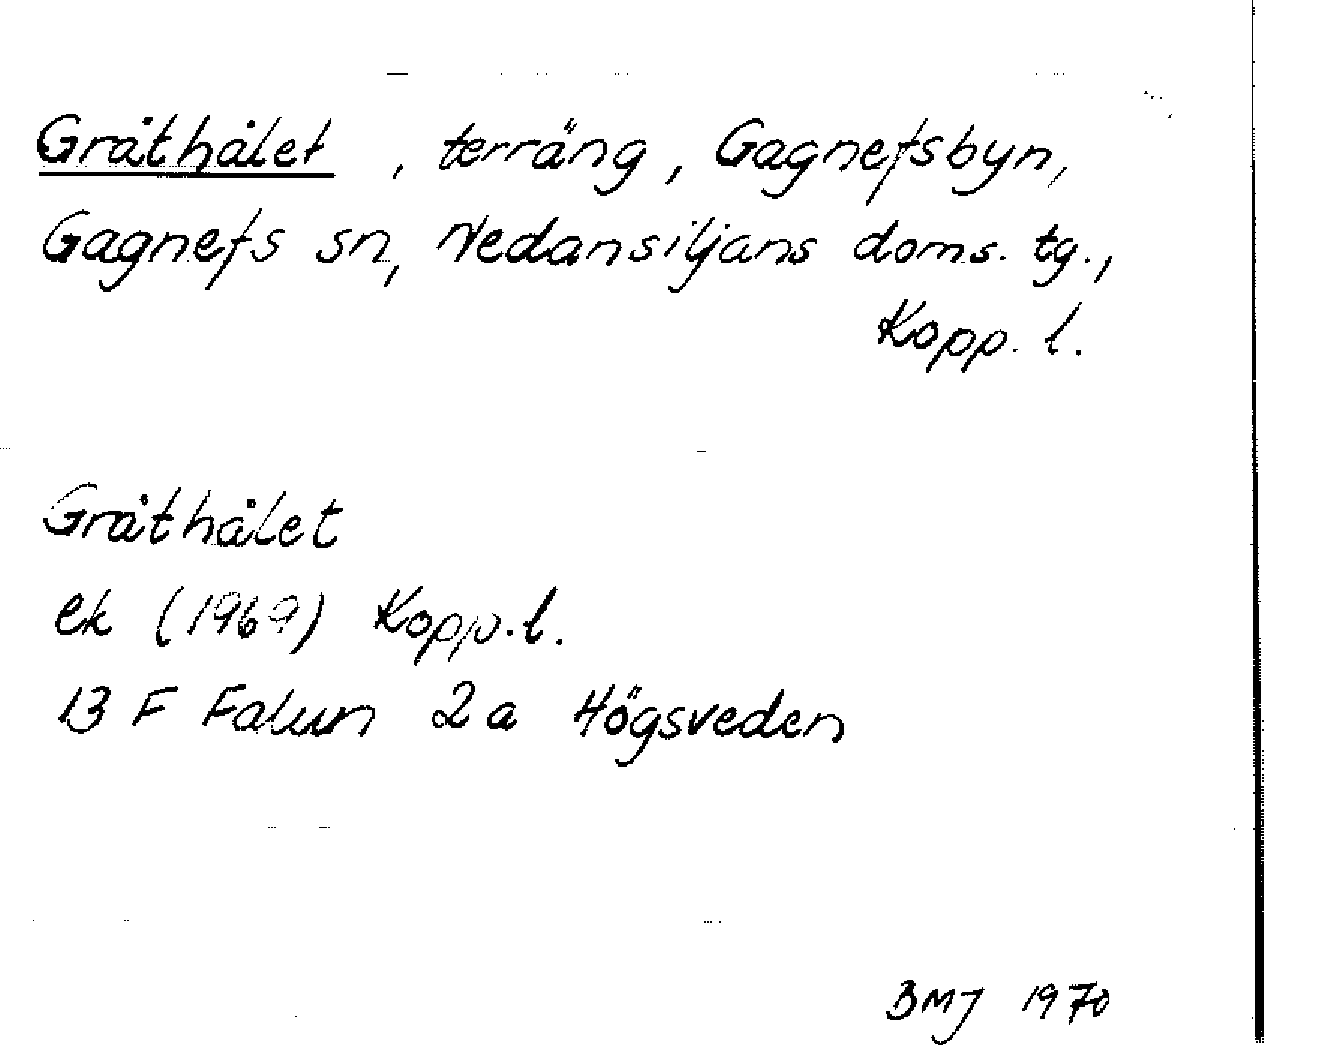 Gråthålet , terräng, Gagnefsbyn,
Gagnefs sn, Nedansiljans doms. tg.,
Kopp. l.
Gråthålet
ek (1969) Kopp. l.
13 F Falun 2a Högsveden
BMJ 1970